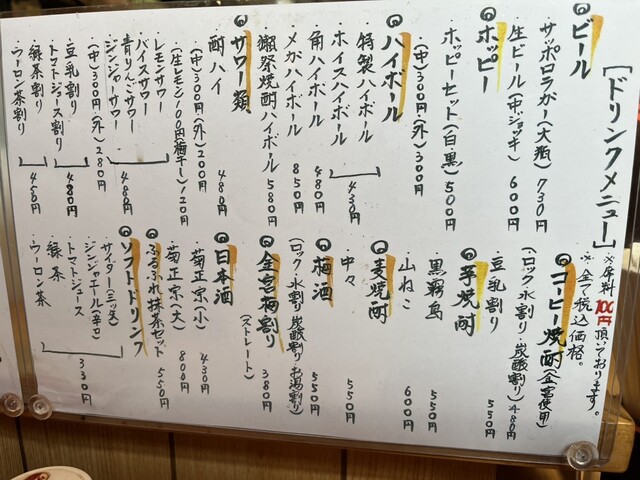 [ドリンクメニュー]
※席料100円頂いております。
※全て税込価格。
ビール
・サッポロラガー(大瓶) 730円
・生ビール(中ジョッキ) 600円
ホッピー
・ホッピーセット(白・黒) 500円
(中)300円・(外)300円
ハイボール
・特製ハイボール
・ホイスハイボール 430円
・角ハイボール 480円
・メガハイボール 850円
・獺祭焼酎ハイボール 580円
サワー類
・酎ハイ 480円
(中)300円(外)200円
(生レモン100円梅干し)120円
・レモンサワー
・バイスサワー
・青りんごサワー
・ジンジャーサワー 480円
(中)300円・(外)280円
・豆乳割り
・トマトジュース割り 480円
・緑茶割り
・ウーロン茶割り 450円
コーヒー焼酎(金宮使用)
(ロック・水割り・炭酸割り) 480円
・豆乳割り 550円
芋焼酎
・黒霧島 550円
・山ねこ 600円
麦焼酎
・中々 550円
梅酒 550円
(ロック・水割り・炭酸割り・お湯割り)
金宮梅割り 380円
(ストレート)
日本酒
・菊正宗(小) 430円
・菊正宗(大) 800円
・ふるふれ抹茶セット 550円
ソフトドリンク
・サイダー(三ツ矢)
・ジンジャエール(辛口)
・トマトジュース
・緑茶
・ウーロン茶 330円